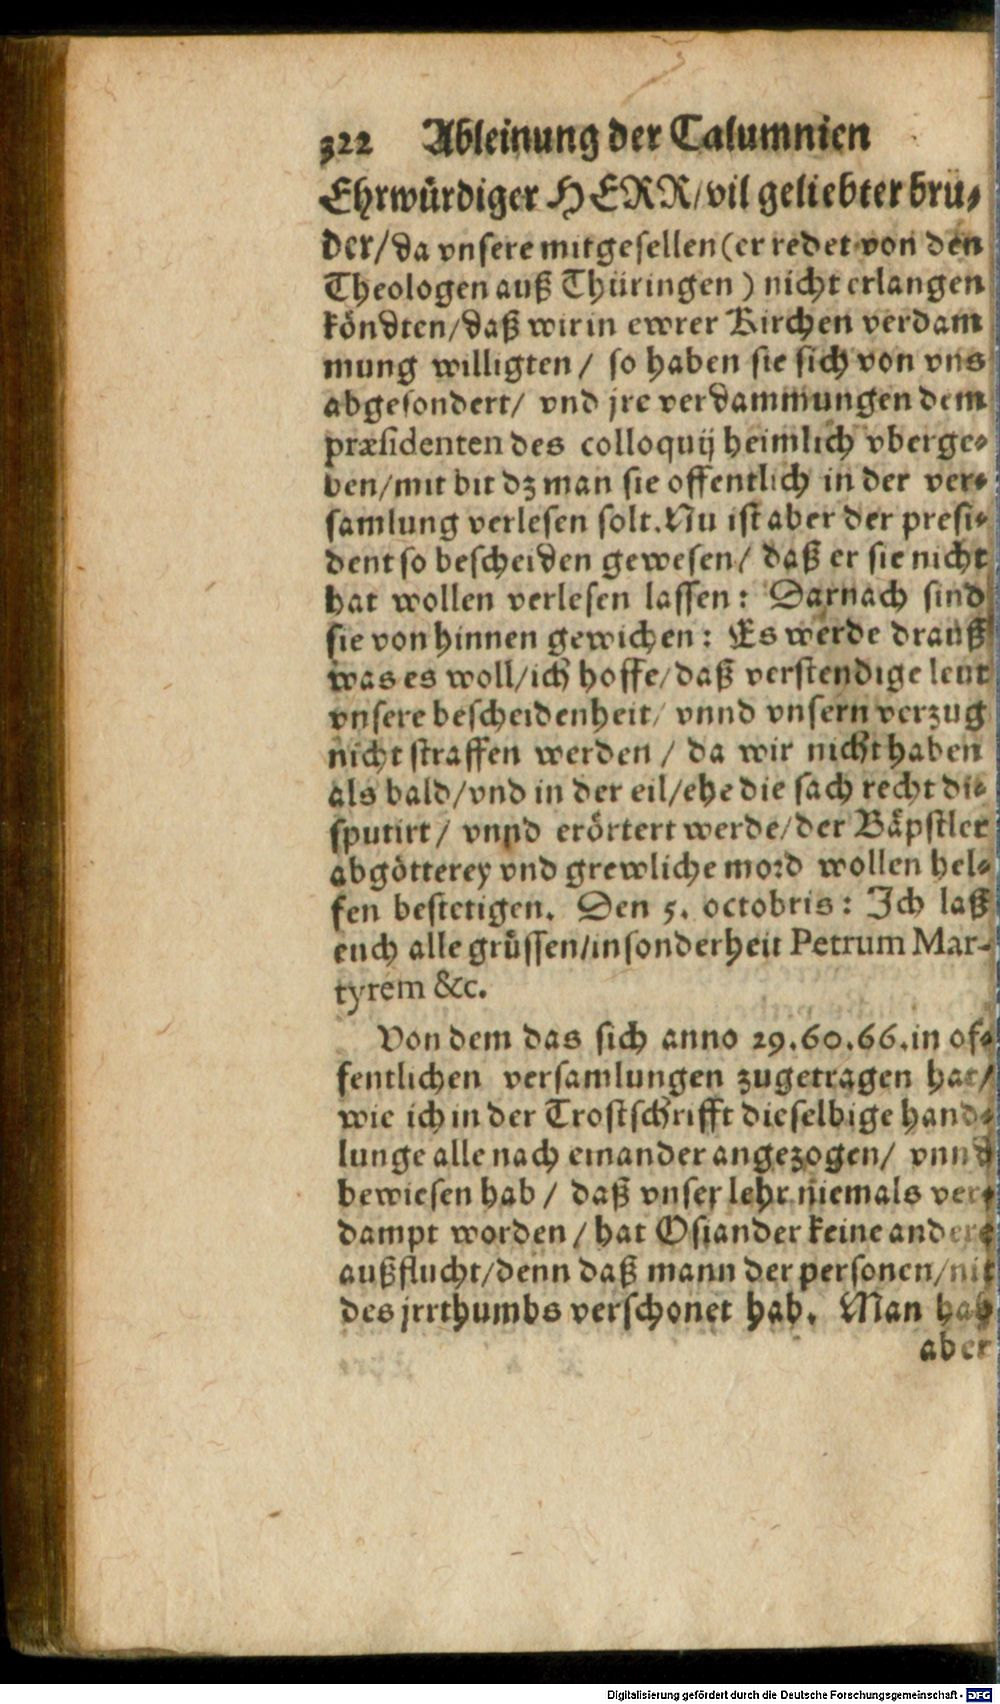 322 Ableinung der Calumnien
Ehrwürdiger HERR/ vil geliebter brü-
der/ da vnsere mitgesellen (er redet von den
Theologen auß Thüringen ) nicht erlangen
köndten/ daß wir in ewrer Kirchen verdam
mung willigten / so haben sie sich von vns
abgesondert/ vnd jre verdammungen dem
præsidenten des colloquij heimlich vberge-
ben/ mit bit dz man sie offentlich in der ver-
samlung verlesen solt. Nu ist aber der presi-
dent so bescheiden gewesen/ daß er sie nicht
hat wollen verlesen lassen: Darnach sind
sie von hinnen gewichen: Es werde drauß
was es woll/ ich hoffe/ daß verstendige leut
vnsere bescheidenheit/ vnnd vnsern verzug
nicht straffen werden / da wir nicht haben
als bald/ vnd in der eil/ ehe die sach recht di-
sputirt/ vnnd erörtert werde/ der Bäpstler
abgötterey vnd grewliche mord wollen hel-
fen bestetigen. Den 5. octobris: Ich laß
euch alle grüssen/ insonderheit Petrum Mar-
tyrem &c.
Von dem das sich anno 29.60.66. in of-
fentlichen versamlungen zugetragen hat/
wie ich in der Trostschrifft dieselbige hand-
lunge alle nach einander angezogen/ vnnd
bewiesen hab / daß vnser lehr niemals ver-
dampt worden / hat Osiander keine andere
außflucht/ denn daß mann der personen/ nit
des jrrthumbs verschonet hab. Man hab
aber
Digitalisierung gefördert durch die Deutsche Forschungsgemeinschaft - DFG